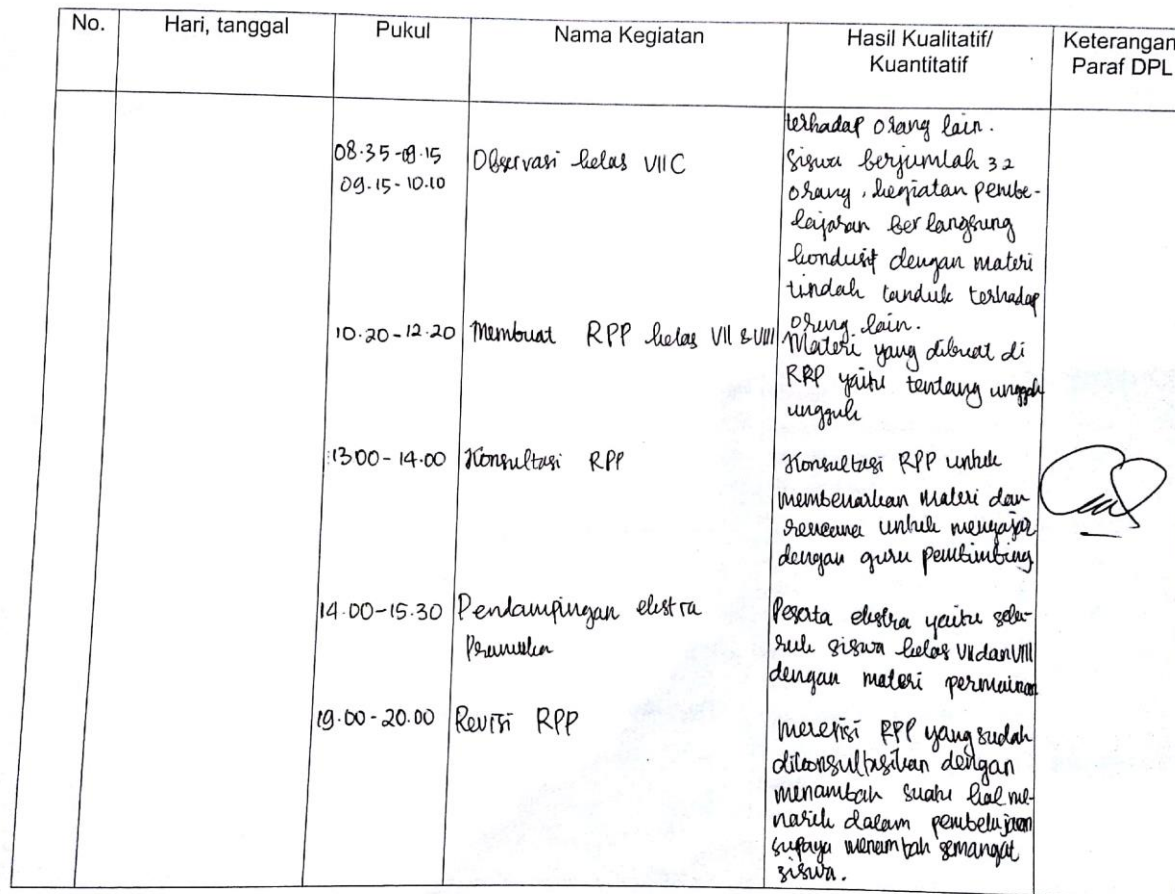 No. Hari, tanggal Pukul Nama Kegiatan Hasil Kualitatif/ Keterangan
Kuantitatif Paraf DPL
terhadap orang lain.
08.35-09.15 Observasi kelas VII C Siswa berjumlah 32
09.15-10.10 orang, kegiatan pembe-
lajaran berlangsung
kondusif dengan materi
tindak tanduk terhadap
orang lain.
10.20-12.20 Membuat RPP kelas VII & VIII Materi yang dibuat di
RPP yaitu tentang unggah
ungguh
13.00-14.00 Konsultasi RPP Konsultasi RPP untuk
membenarkan materi dan
rencana untuk mengajar
dengan guru pembimbing
14.00-15.30 Pendampingan ekstra Peserta ekstra yaitu selu-
Pramuka ruh siswa kelas VII dan VIII
dengan materi permainan
19.00-20.00 Revisi RPP merevisi RPP yang sudah
dikonsultasikan dengan
menambah suatu hal me-
narik dalam pembelajaran
supaya menambah semangat
siswa.